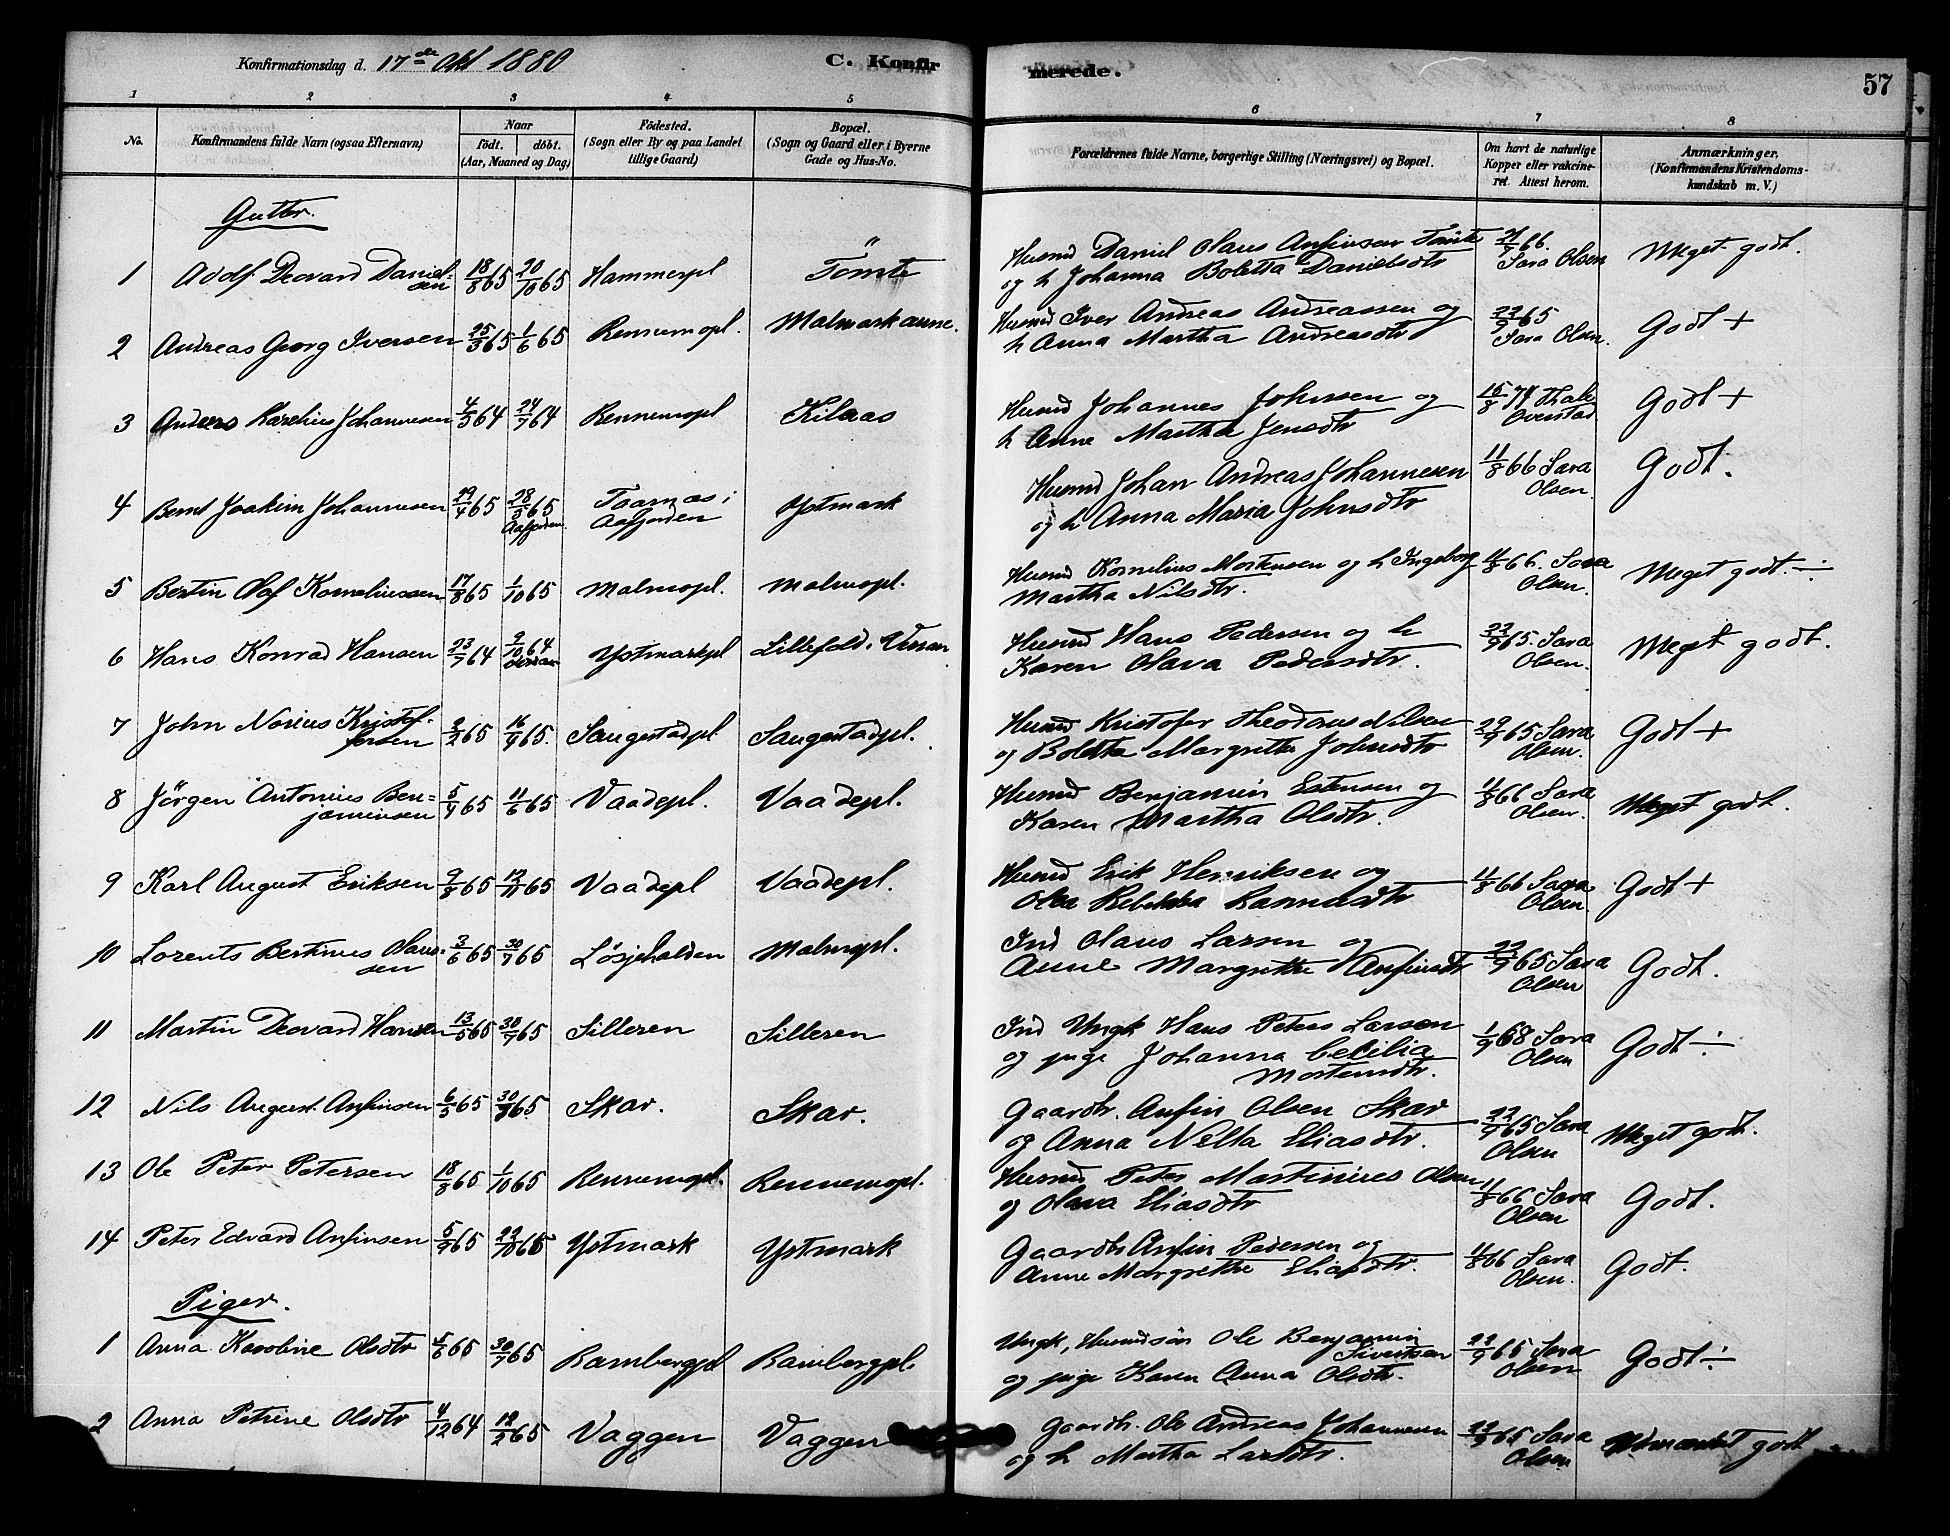 Konfirmationsdag d. 17de Okt 1880 C. Konfirmerede. 57
1 2 3 4 5 6 7 8
No. Konfirmandens fulde Navn (ogsaa Efternavn) Naar født. døbt. (Aar, Maaned og Dag) Fødested. (Sogn eller By og paa Landet tillige Gaard) Bopæl. (Sogn og Gaard eller i Byerne Gade og Hus-No. Forældrenes fulde Navne, borgerlige Stilling (Næringsvei) og Bopæl. Om havt de naturlige Kopper eller vakcineret. Attest herom. Anmærkninger, (Konfirmandens Kristendomskundskab m. V.)
Gutter.
1 Adolf Deovard Danielsen 18/8 65 20/10 65 Hammerpl Tømte Husmd Daniel Olaus Anfinsen Tømte 21/9 66. Meget godt.
og h Johanna Boletta Danielsdtr Sara Olsen
2 Andreas Georg Iversen 25/3 65 1/6 65 Rennemopl. Malmark anne. Husmd Iver Andreas Andreassen og 22/9 65 Godt +
h Anna Martha Andreasdtr Sara Olsen.
3 Anders Karelius Johannesen 4/5 64 24/7 64 Rennemopl Kilaas Husmd Johannes Johnsen og 15/8 74 Godt +
h Anne Martha Jensdtr Overstad.
4 Bernt Joakim Johannesen 29/4 65 28/5 65 Aafjorden Taarnæs i Aafjorden Ystmark Husmd Johan Andreas Johannesen 11/8 66 Sara Godt.
og h Anna Maria Johnsdtr Olsen.
5 Bertin Olaf Korneliussen 17/8 65 1/10 65 Malmopl. Malmopl. Husmd Kornelius Mortensen og h Ingeborg 11/8 66. Sara Meget godt. ÷
Martha Nilsdtr. Olsen.
6 Hans Konrad Hansen 23/7 64 2/10 64 Verran Ystmarkpl Lillefold i Verran Husmd Hans Pedersen og h 22/9 65 Sara Meget godt.
Karen Olava Pedersdtr. Olsen.
7 John Norius Kristofersen 2/2 65 16/9 65. Saugestadpl Saugestadpl. Husmd Kristofer Theodorus Nilsen 29/9 65 Sara Godt +
og Boletta Margrethe Johnsdtr Olsen.
8 Jørgen Antonius Benjaminsen 5/4 65 11/6 65 Vaadepl. Vaadepl. Husmd Benjamin Estensen og 11/8 66 Sara Meget godt.
Karen Martha Olsdtr. Olsen.
9 Karl August Eriksen 9/8 65 12/11 65 Vaadepl Vaadepl. Husmd Erik Henriksen og 11/8 66 Sara Godt +
Olea Rebekka Olsen.
10 Lorents Bertinus Olaussen 3/6 65 30/7 65 Løsjehalden Malmopl. Ind Olaus Larsen og 22/9 65 Sara Godt.
Anne Margrethe Anfinsdtr Olsen
11 Martin Deovard Hansen 13/5 65 30/7 65 Silleren Silleren Ind Ungk Hans Peter Larsen 1/9 68 Sara Godt ÷
og pige Johanna Cecilia Mortensdtr. Olsen
12 Nils August Anfinsen 6/5 65 30/7 65 Skar. Skar. Gaardbr. Anfin Olsen Skar 22/9 65 Sara Meget godt.
og Anna Nella Eliasdtr. Olsen
13 Ole Peter Petersen 18/8 65 1/10 65 Rennemopl. Rennemopl. Husmd Peter Martinius Olsen 11/8 66 Sara Godt.
og Olava Eliasdtr Olsen
14 Peter Edvard Anfinsen 5/9 65 22/10 65 Ystmark Ystmark Gaardbr Anfin Pedersen og 11/8 66 Sara Godt.
Anne Margrethe Eliasdtr. Olsen.
Piger.
1 Anna Karoline Olsdtr 5/6 65 30/7 65 Rambergpl Rambergpl. Ungk, Husmdsøn Ole Benjamin Sivertsen 22/9 65 Sara Godt ÷
og pige Karen Anna Olsdtr. Olsen
2 Anna Petrine Olsdtr 4/12 64 12/2 65 Vaggen Vaggen Gaardbr. Ole Andreas Johannesen 22/9 65 Sara Udmærket godt
og h Martha Larsdtr. Olsen